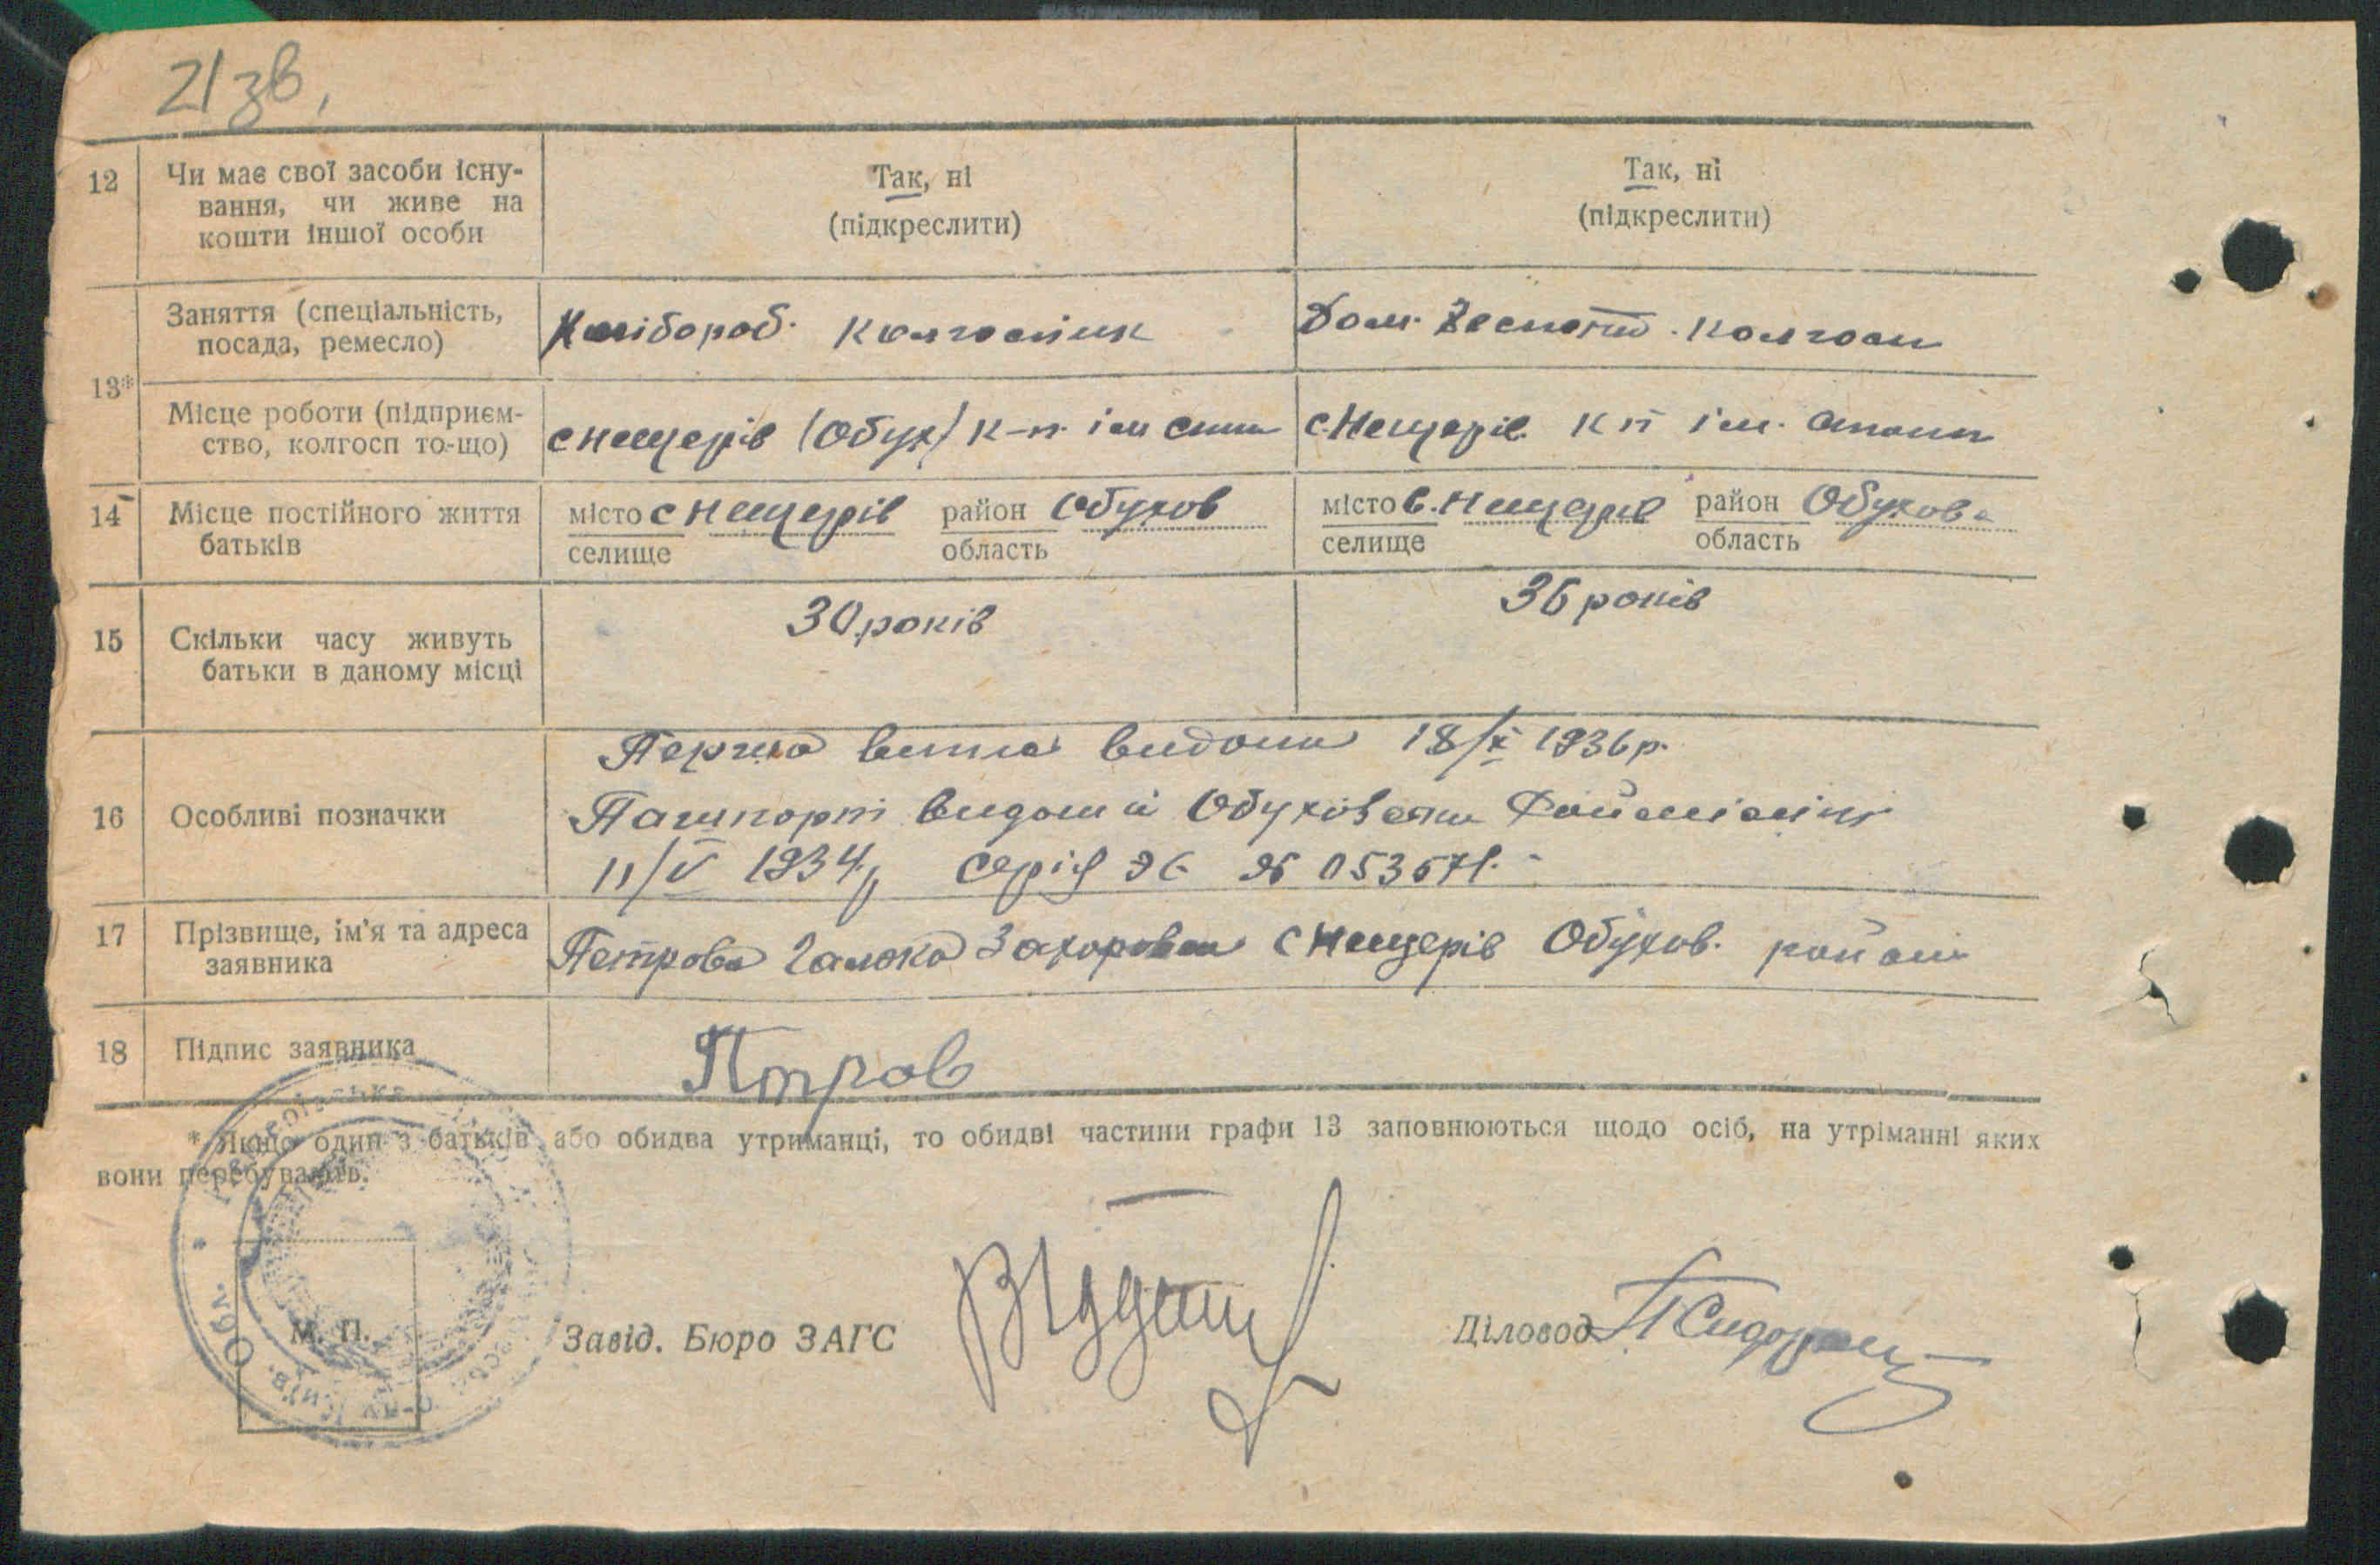 21 зв.
12 Чи має свої засоби існу-
вання, чи живе на
кошти іншої особи
Так, ні
(підкреслити)
Так, ні
(підкреслити)
13*
Заняття (спеціальність,
посада, ремесло)
Хлібороб. колгоспник
Дом. госпот. колгосп
Місце роботи (підприєм-
ство, колгосп то-що)
с Нещерів (Обух) к-п. ім
с. Нещерів. к п ім.
14 Місце постійного життя
батьків
місто с Нещерів район Обухов
селище область
місто с. Нещерів район Обухов.
селище область
15 Скільки часу живуть
батьки в даному місці
30 років
36 років
16 Особливі позначки
Перша видана 18/X 1936 р.
Пашпорт виданий Обуховским
11/V 1934 р серія ЭС № 053571.
17 Прізвище, ім'я та адреса
заявника
Петрова Галька Захаровна с Нещерів Обухов. район
18 Підпис заявника
Птров
* Якщо один з батьків або обидва утриманці, то обидві частини графи 13 заповнюються щодо осіб, на утріманні яких
вони перебувають.
М. П.
Обл. Київ.
Завід. Бюро ЗАГС
Діловод